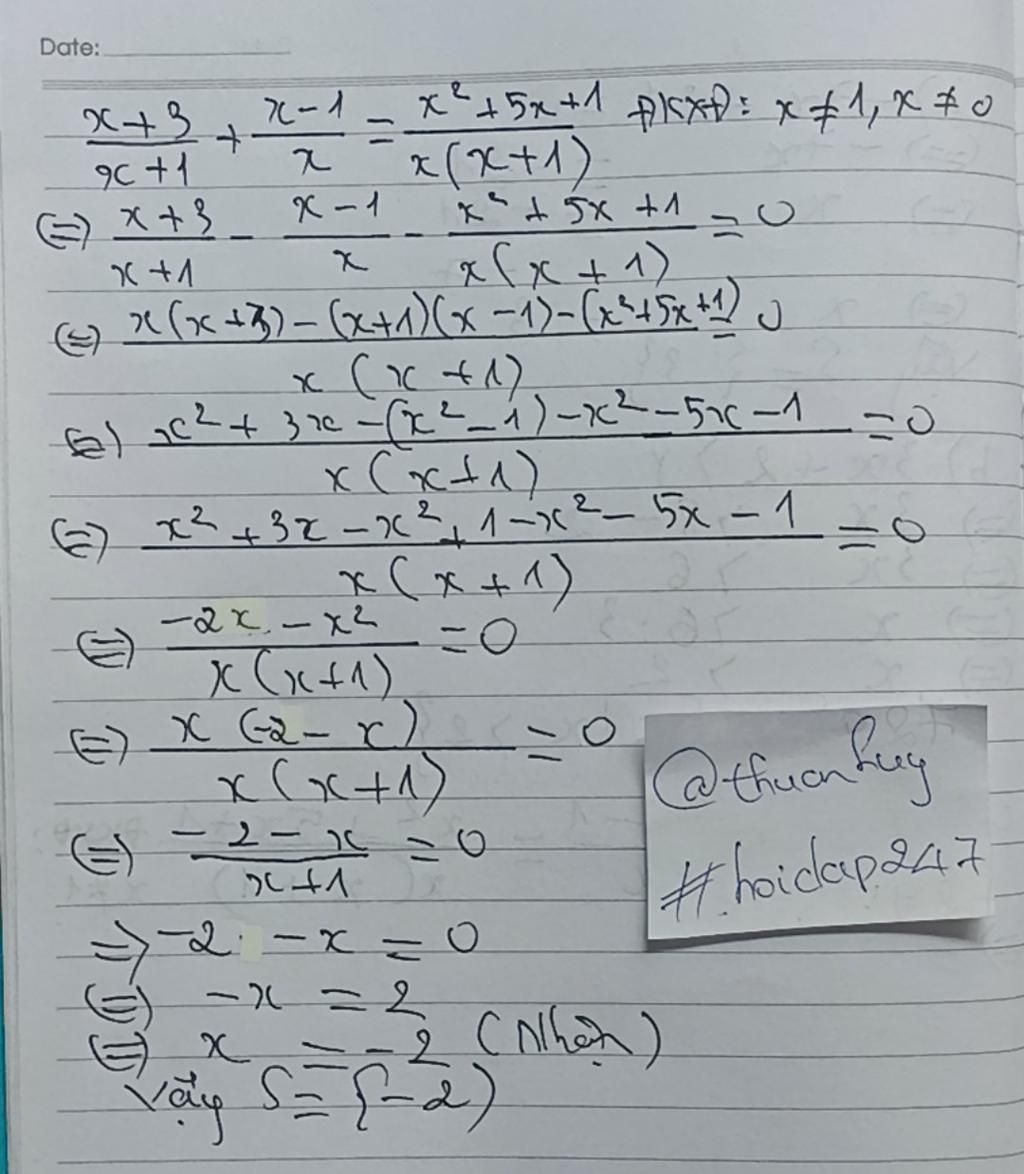 Date:
x+3/x+1 + x-1/x = x²+5x+1/x(x+1) ĐKXĐ: x ≠ 1, x ≠ 0
(=) x+3/x+1 - x-1/x - x²+5x+1/x(x+1) = 0
(=) x(x+3)-(x+1)(x-1)-(x²+5x+1)/x(x+1) = 0
(=) x²+3x-(x²-1)-x²-5x-1/x(x+1) = 0
(=) x²+3x-x²+1-x²-5x-1/x(x+1) = 0
(=) -2x-x²/x(x+1) = 0
(=) x(-2-x)/x(x+1) = 0
(=) -2-x/x+1 = 0
=> -2 -x = 0
(=) -x = 2
(=) x = -2 (Nhận)
Vậy S = {-2}
@thuanhuy
#hoidap247